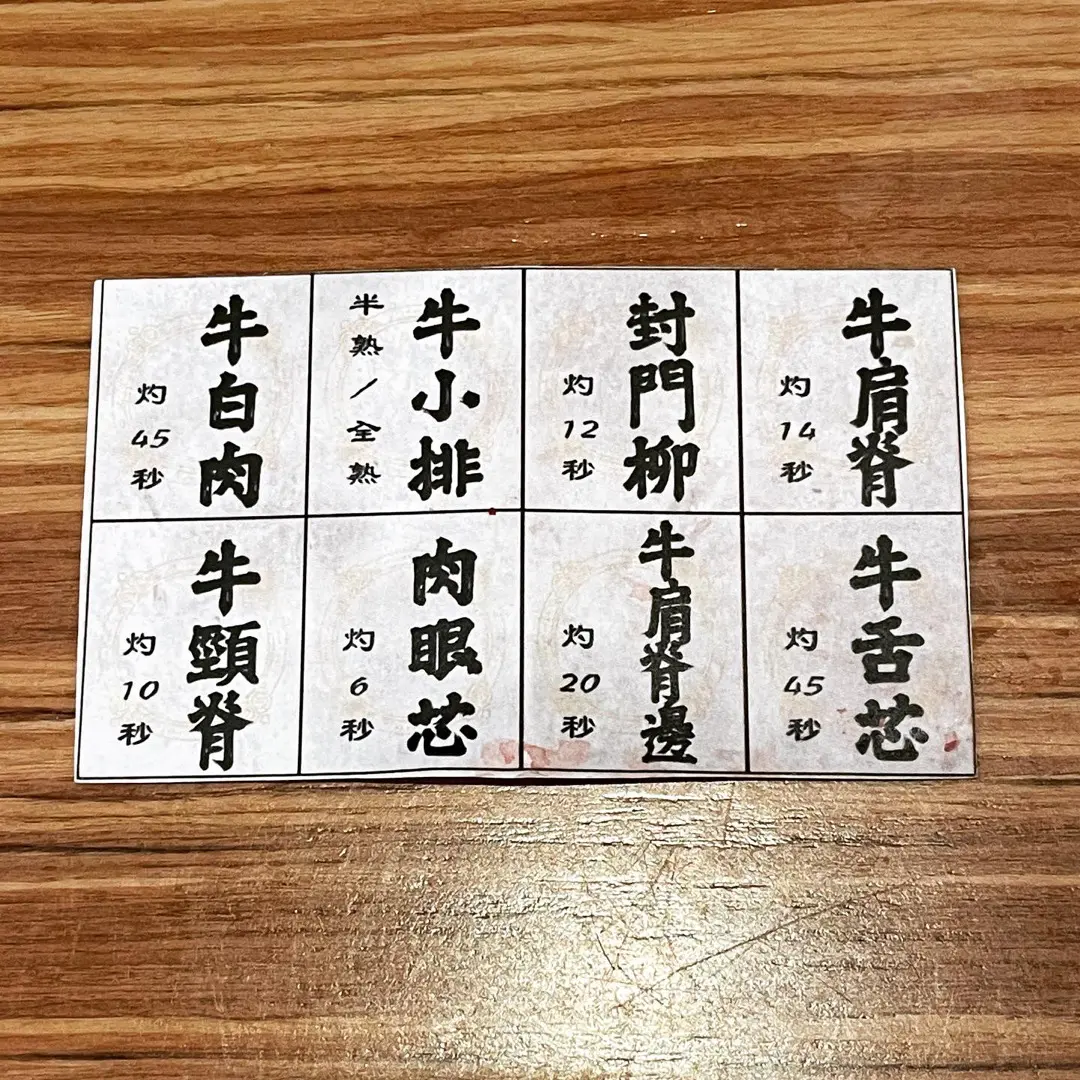 牛肩脊
灼14秒
封門柳
灼12秒
牛小排
半熟/全熟
牛白肉
灼45秒
牛舌芯
灼45秒
牛肩脊邊
灼20秒
肉眼芯
灼6秒
牛頸脊
灼10秒